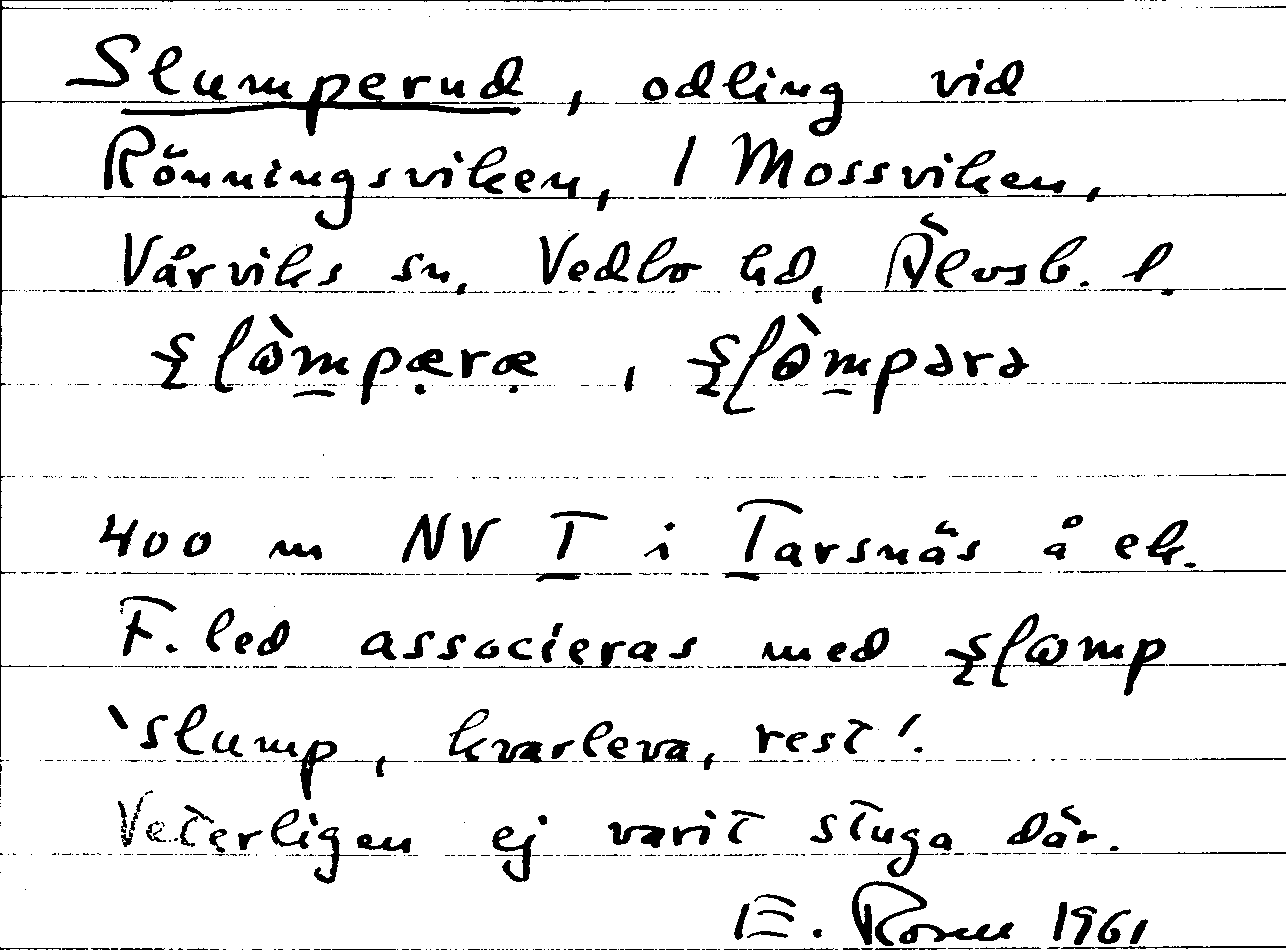 Slumperud, odling vid
Rönningsviken, / Mossviken,
Vårviks sn, Vedbo hd, Älvsb. l.
400 m NV T i Tarsnäs å ek.
F. led associeras med
'slump, kvarleva, rest'.
Veterligen ej varit stuga där.
E. Rosell 1961